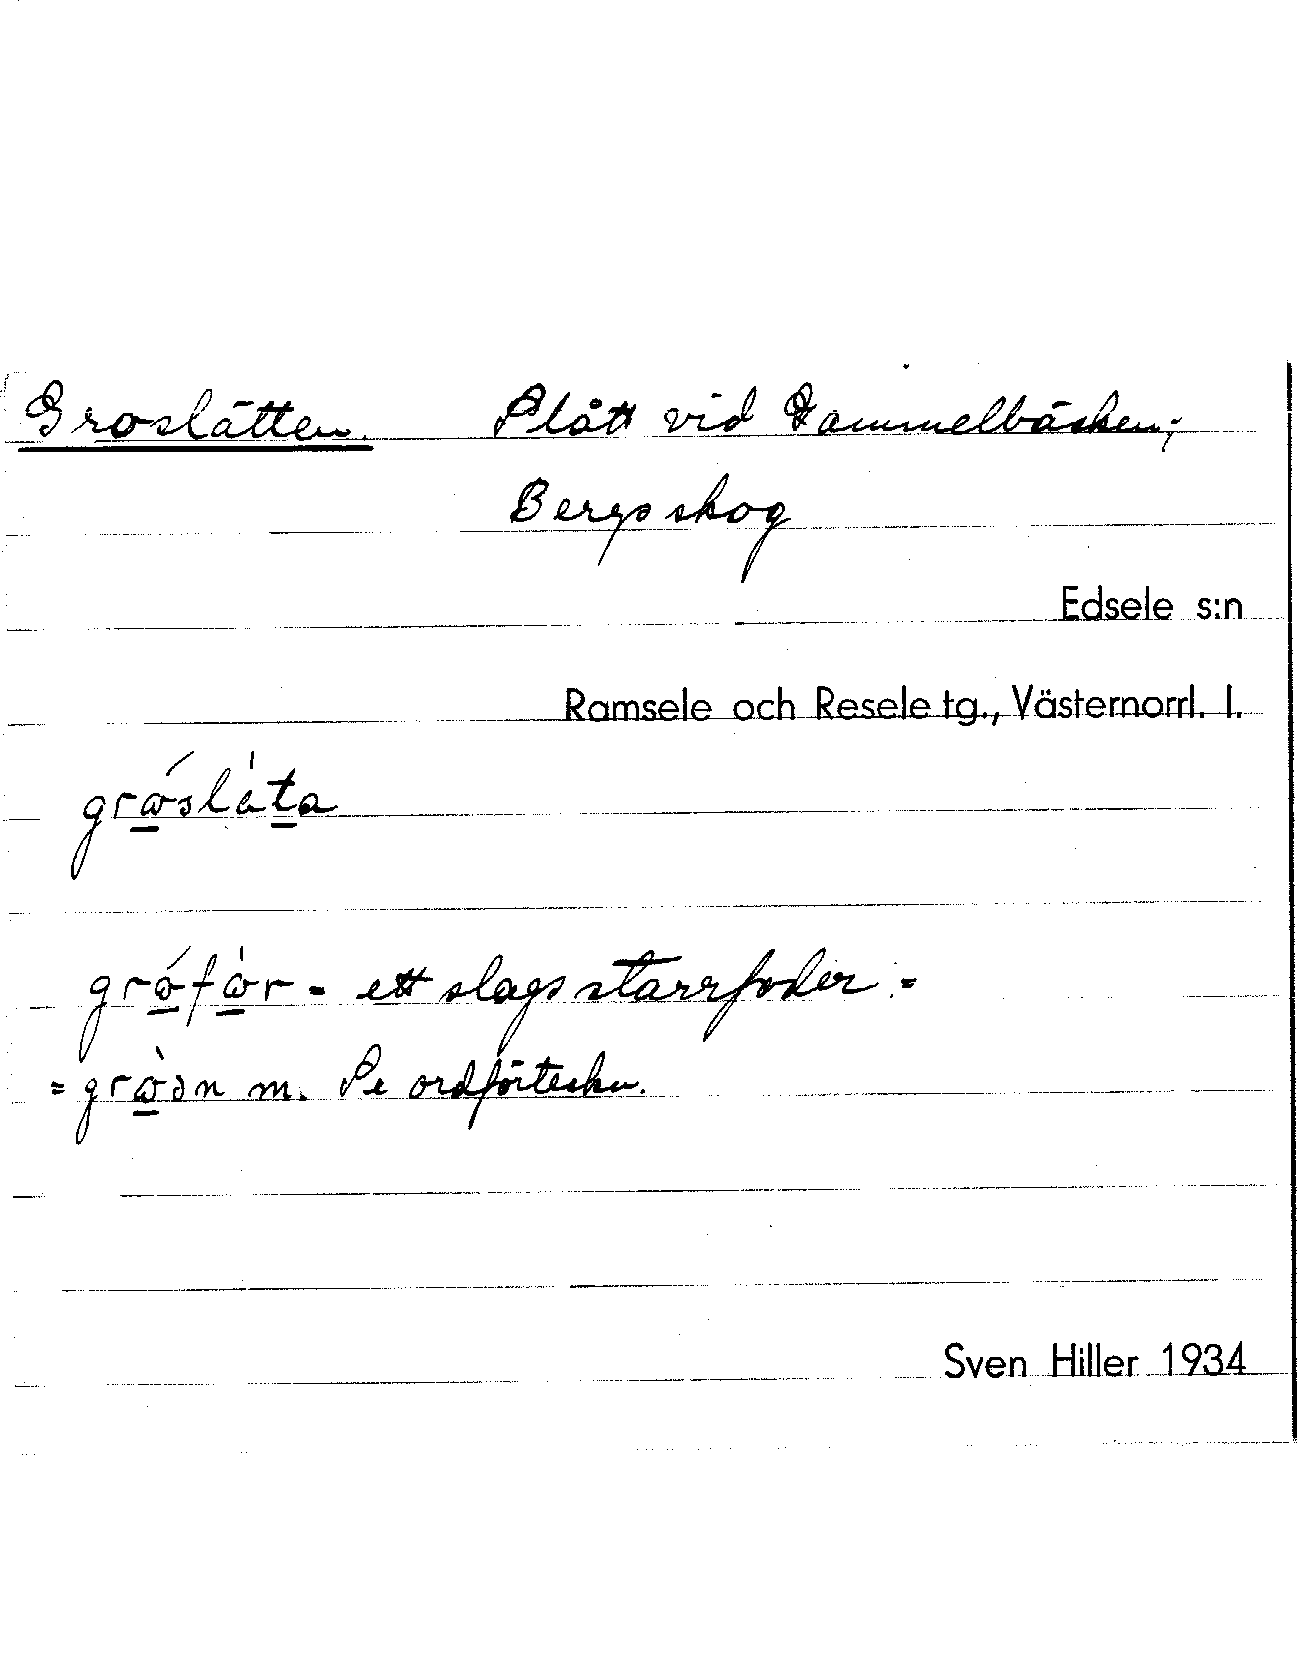 Groslätten. Slått vid Gammelbäcken;
Bergs skog
Edsele s:n
Ramsele och Resele tg., Västernorrl. l.
gro̲slàt̲a
gró̲fò̲r - ett slags starrfoder. -
= grò̲ən m. Se ordförteckn.
Sven Hiller 1934